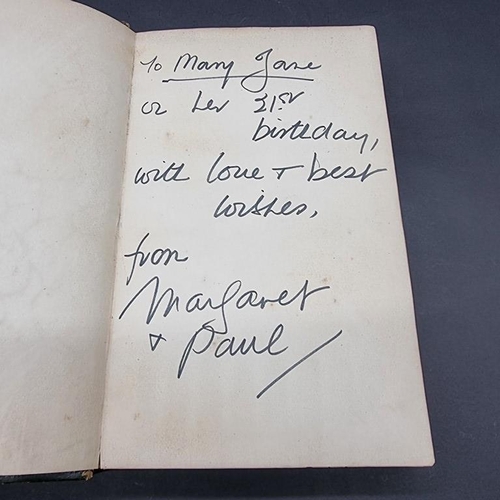 To Mary Jane
on her 21st
birthday,
with love + best
wishes,
from
Margaret
+ Paul